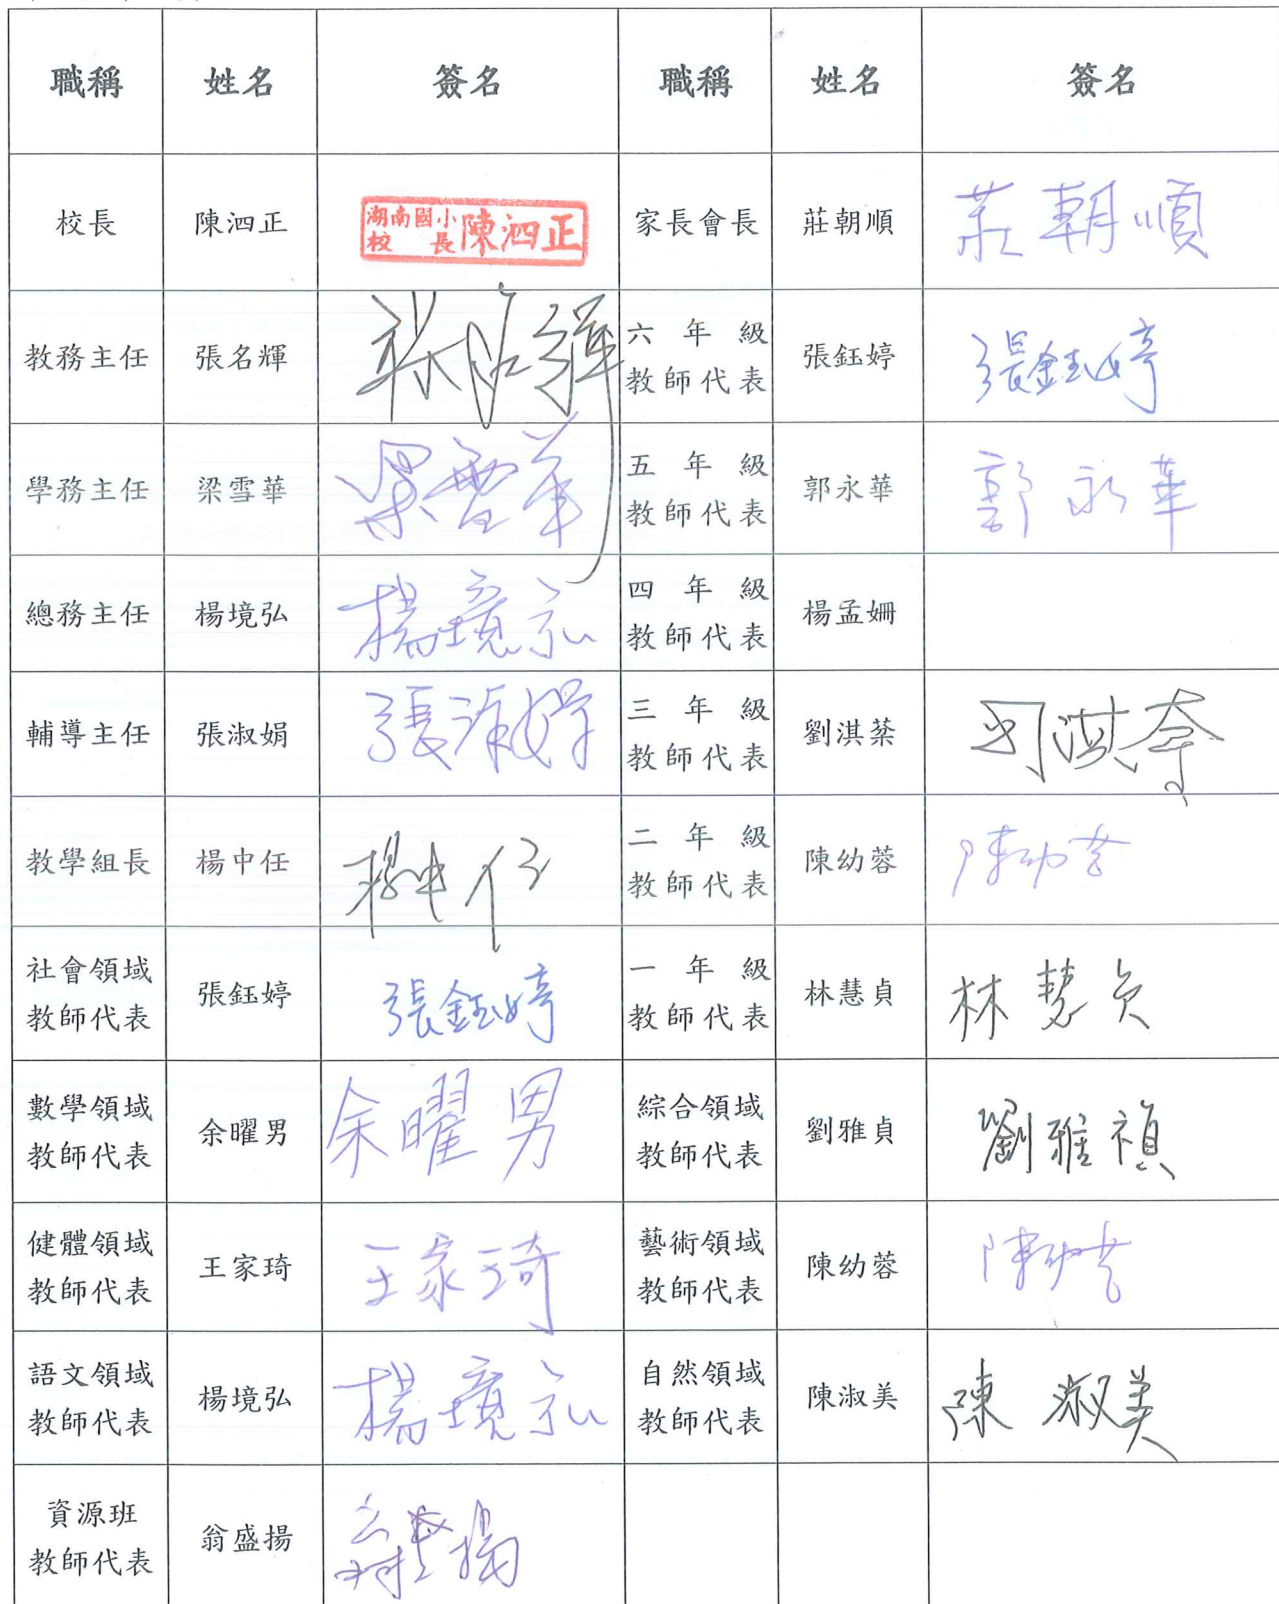 職稱 姓名 簽名 職稱 姓名 簽名
校長 陳泗正 湖南國小校長陳泗正 家長會長 莊朝順 莊朝順
教務主任 張名輝 張名輝 六年級教師代表 張鈺婷 張鈺婷
學務主任 梁雪華 梁雪華 五年級教師代表 郭永華 郭永華
總務主任 楊境弘 楊境弘 四年級教師代表 楊孟姍
輔導主任 張淑娟 張淑娟 三年級教師代表 劉淇棻
教學組長 楊中任 楊中任 二年級教師代表 陳幼蓉 陳幼蓉
社會領域教師代表 張鈺婷 張鈺婷 一年級教師代表 林慧貞 林慧貞
數學領域教師代表 余曜男 余曜男 綜合領域教師代表 劉雅貞 劉雅禎
健體領域教師代表 王家琦 王家琦 藝術領域教師代表 陳幼蓉 陳幼蓉
語文領域教師代表 楊境弘 楊境弘 自然領域教師代表 陳淑美 陳淑美
資源班教師代表 翁盛揚 翁盛揚